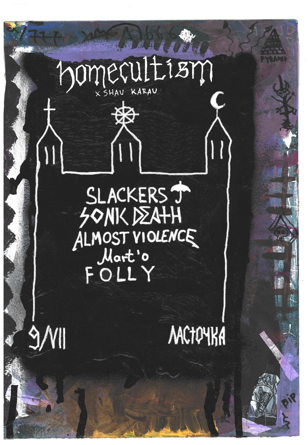 homecultism
x SHAU KARAU
PYRAMID
SLACKERS
SONIC DEATH
ALMOST VIOLENCE
Mart'o
FOLLY
9/VII
ЛАСТОЧКА
RIP